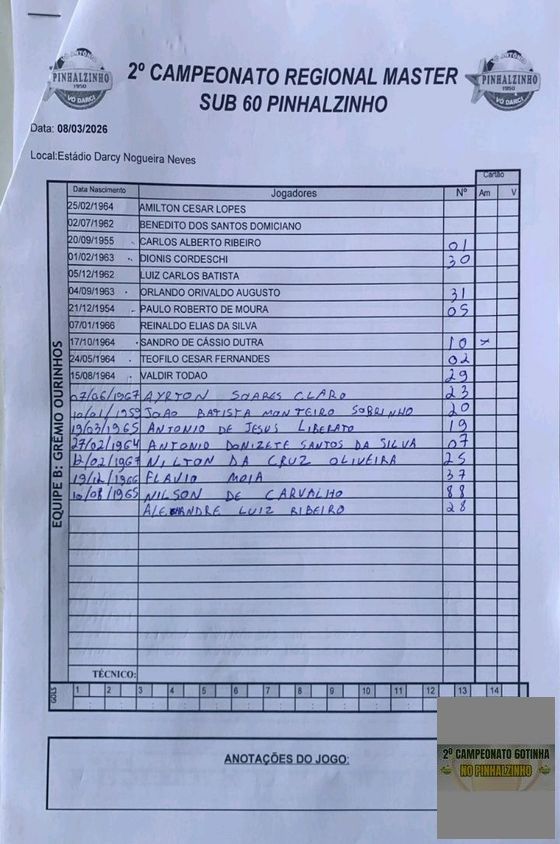 PINHALZINHO
1950
VÔ DARCI
2º CAMPEONATO REGIONAL MASTER
SUB 60 PINHALZINHO
PINHALZINHO
1950
VÔ DARCI
Data: 08/03/2026
Local:Estádio Darcy Nogueira Neves
Cartão
Data Nascimento Jogadores Nº Am V
EQUIPE B: GRÊMIO OURINHOS
25/02/1964 AMILTON CESAR LOPES
02/07/1962 BENEDITO DOS SANTOS DOMICIANO
20/09/1955 CARLOS ALBERTO RIBEIRO 01
01/02/1963 DIONIS CORDESCHI 30
05/12/1962 LUIZ CARLOS BATISTA
04/09/1963 ORLANDO ORIVALDO AUGUSTO 31
21/12/1954 PAULO ROBERTO DE MOURA 05
07/01/1966 REINALDO ELIAS DA SILVA
17/10/1964 SANDRO DE CÁSSIO DUTRA 10 x
24/05/1964 TEOFILO CESAR FERNANDES 02
15/08/1964 VALDIR TODAO 29
07/06/1967 AYRTON SOARES CLARO 23
10/01/1959 JOÃO BATISTA MONTEIRO SOBRINHO 20
19/03/1965 ANTONIO DE JESUS LIBERATO 19
27/02/1964 ANTONIO DONIZETE SANTOS DA SILVA 07
12/02/1967 NILTON DA CRUZ OLIVEIRA 25
19/12/1966 FLAVIO MOIA 37
10/08/1965 NILSON DE CARVALHO 88
ALEXANDRE LUIZ RIBEIRO 28
TÉCNICO:
GOLS 1 2 3 4 5 6 7 8 9 10 11 12 13 14
ANOTAÇÕES DO JOGO:
2º CAMPEONATO 60TINHA
NO PINHALZINHO